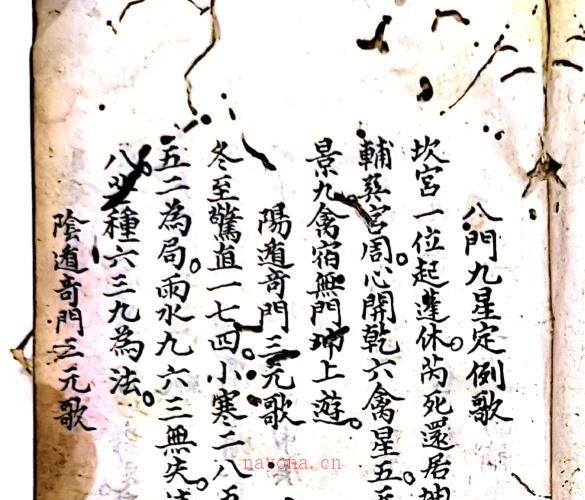 八門九星定例歌
坎宮一位起蓬休。芮死還居坤
輔巽宮周。心開乾六禽星五。
景九禽宿無門坤上遊。
陽遁奇門三元歌
冬至驚蟄一七四。小寒二八五
五二為局。雨水九六三無失。
八。芒種六三九為法。
陰遁奇門三元歌
nayona.cn